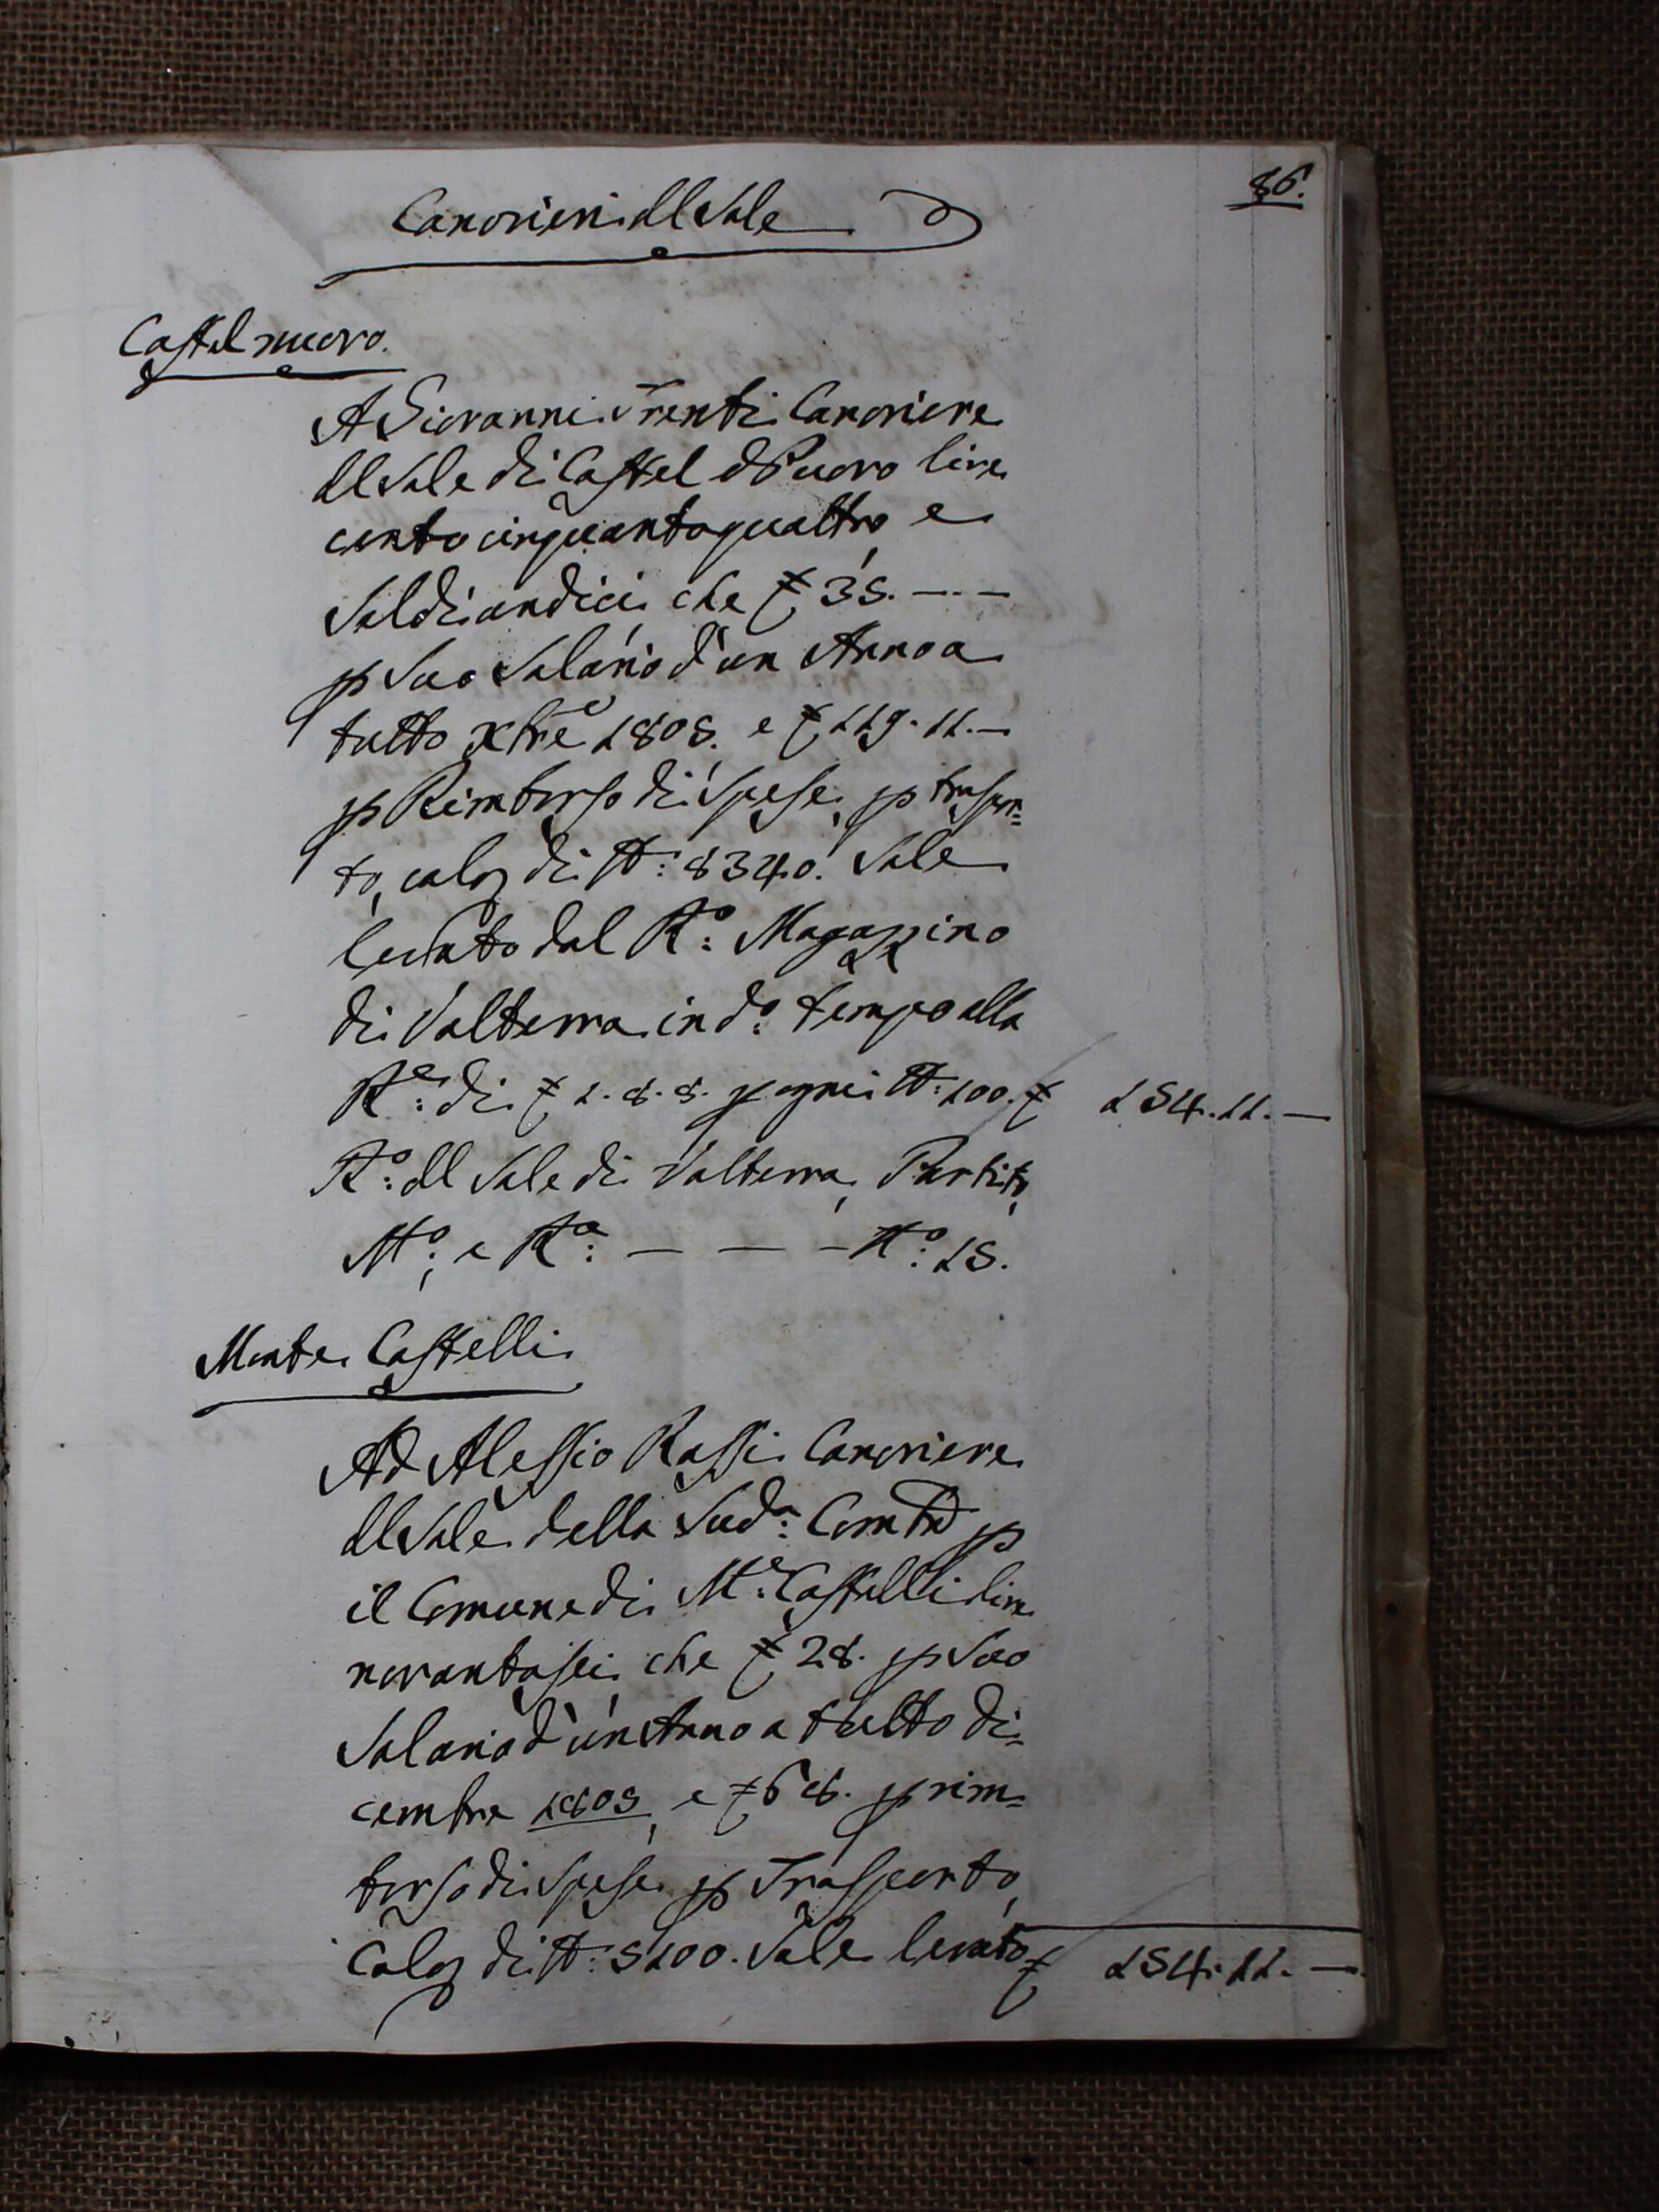 86.
Canovieri del Sale
Castel nuovo.
A Giovanni Trenti Canoviere
del Sale di Castel Nuovo lire
cento cinquantaquattro, e
Soldi undici, che £ 35. — . —
p Suo Salario d'un Anno a
tutto Xbre 1805. e £ 119. 11. —
p Rimborso di Spese, p traspor=
to, calo di lt: 8340. Sale
levato dal R.o: Magazzino
di Volterra in d.o: tempo alla
R.e: di £ 1. 8. 8. p ogni lt: 100. £ 154. 11. —
R.o: del Sale di Volterra, Partito,
M.o:, e R.a: — — — N.o: 15.
Monte Castelli
Ad Alessio Rossi Canoviere
del Sale della Sud.a: Com.tà p
il Comune di M.e: Castelli lire
novantasei, che £ 28. p Suo
Salario d'un Anno a tutto Di=
cembre 1805, e £ 68. p rim=
borso di Spese p Trasporto,
Calo di lt: 5100. Sale levato £ 154. 11. —